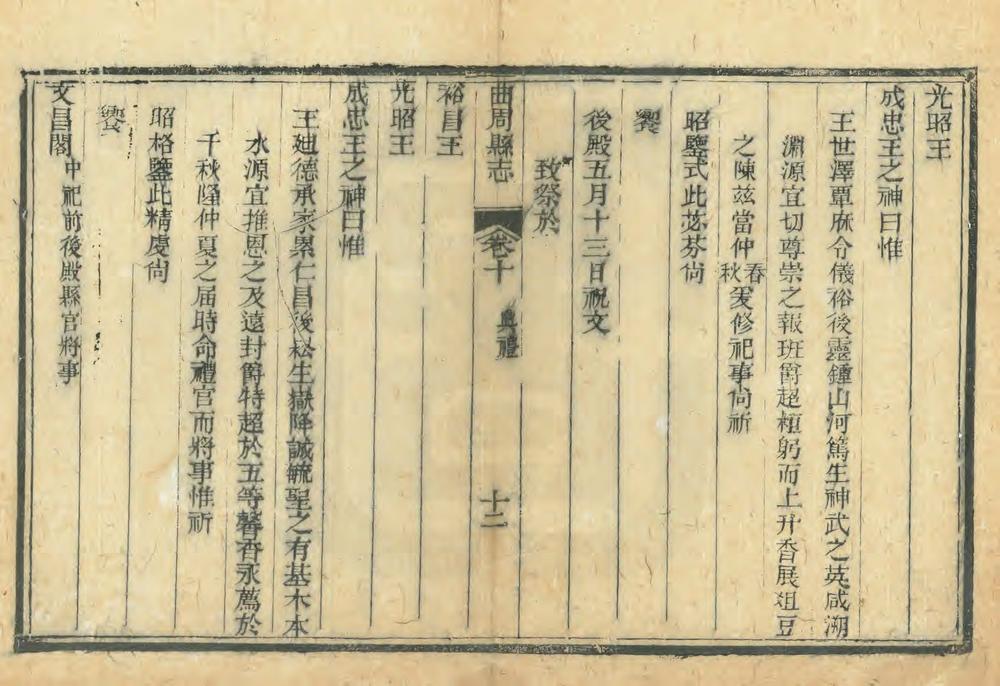 光昭王
成忠王之神曰惟
王世澤覃庥令儀裕後靈鍾山河篤生神武之英咸溯
淵源宜切尊崇之報班爵超桓躬而上升香展俎豆
之陳茲當仲春秋爰修祀事尙祈
昭鑒式此苾芬尙
饗
後殿五月十三日祝文
致祭於
曲周縣志 卷十 典禮 十二
裕昌王
光昭王
成忠王之神曰惟
王迪德承家累仁昌後崧生嶽降誠毓聖之有基木本
水源宜推恩之及遠封爵特超於五等馨香永薦於
千秋隆仲夏之届時命禮官而將事惟祈
昭格鑒此精虔尙
饗
文昌閣中祀前後殿縣官將事